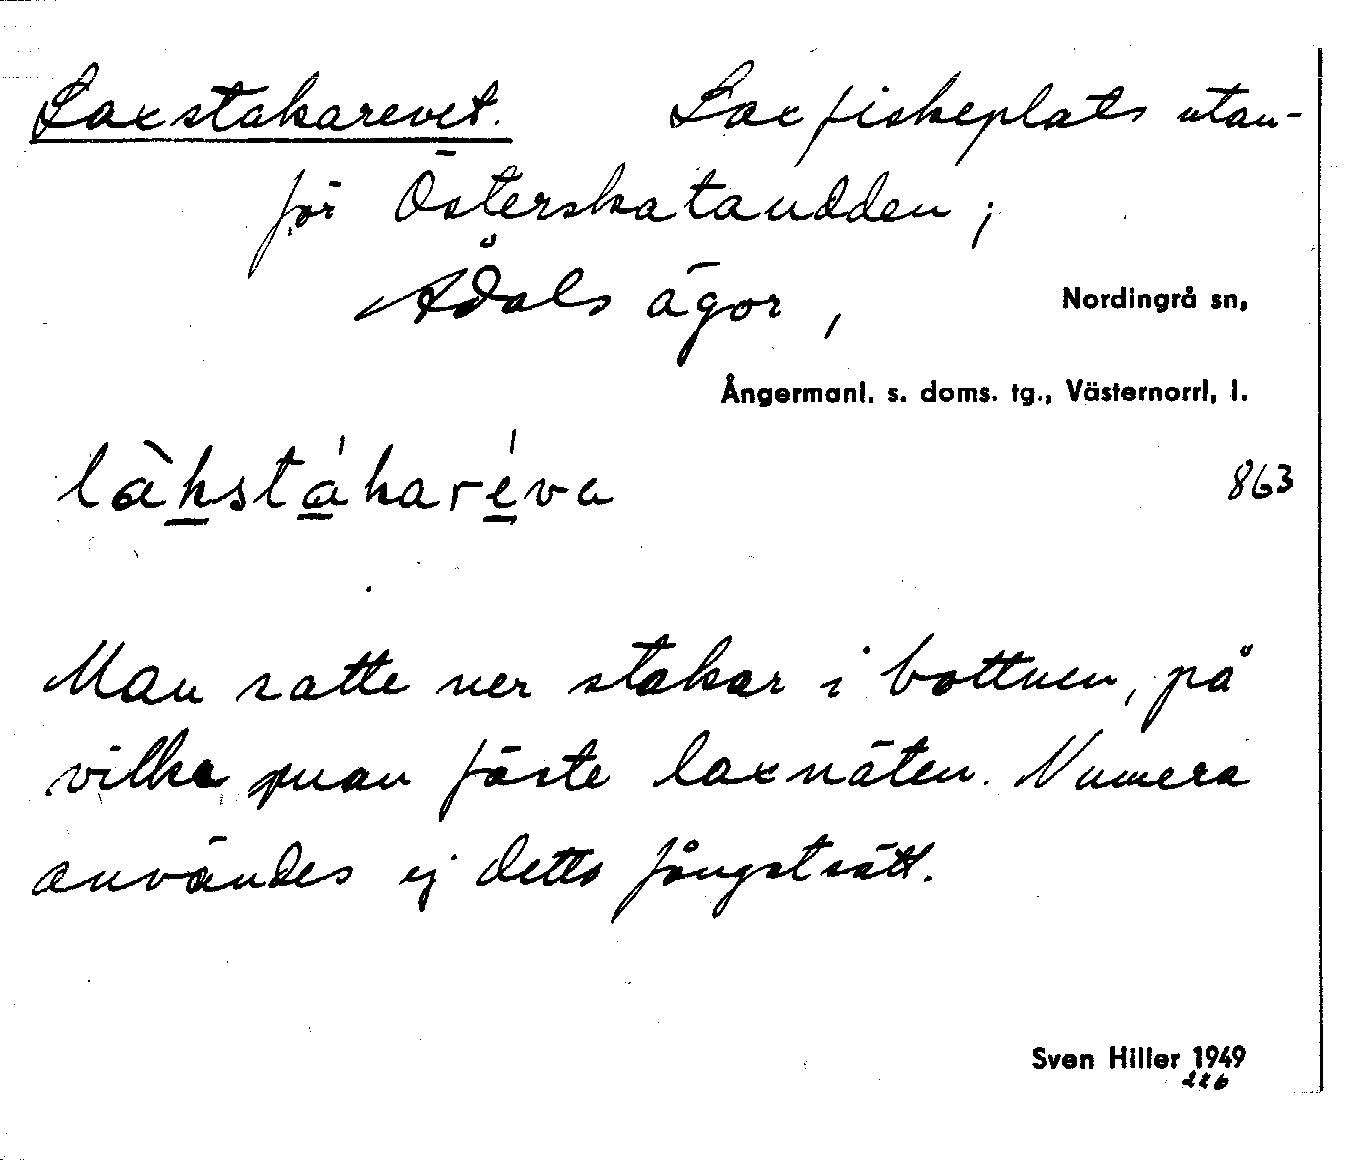 Laxstakarevet. Laxfiskeplats utan-
för Österskataudden;
Ådals ägor, Nordingrå sn,
Ångermanl. s. doms. tg., Västernorrl. l.
làkstákaréva 863
Man satte ner stakar i bottnen, på
vilka man fäste laxnäten. Numera
användes ej detta fångstsätt.
Sven Hiller 1949
226